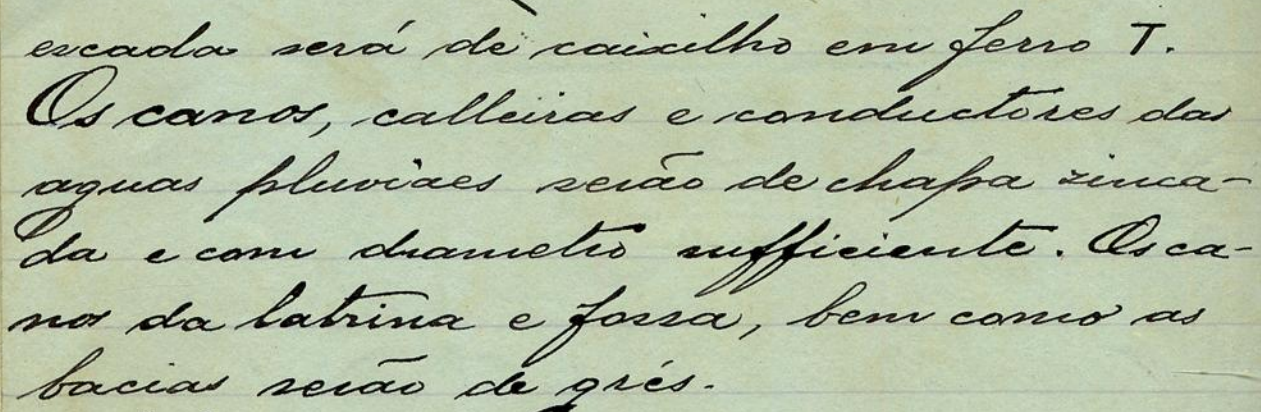 escada será de caixilho em ferro T.
Os canos, calleiras e conductores das
aguas pluviaes serão de chapa zinca-
da e com diametro sufficiente. Os ca-
nos da latrina e fossa, bem como as
bacias serão de grés.